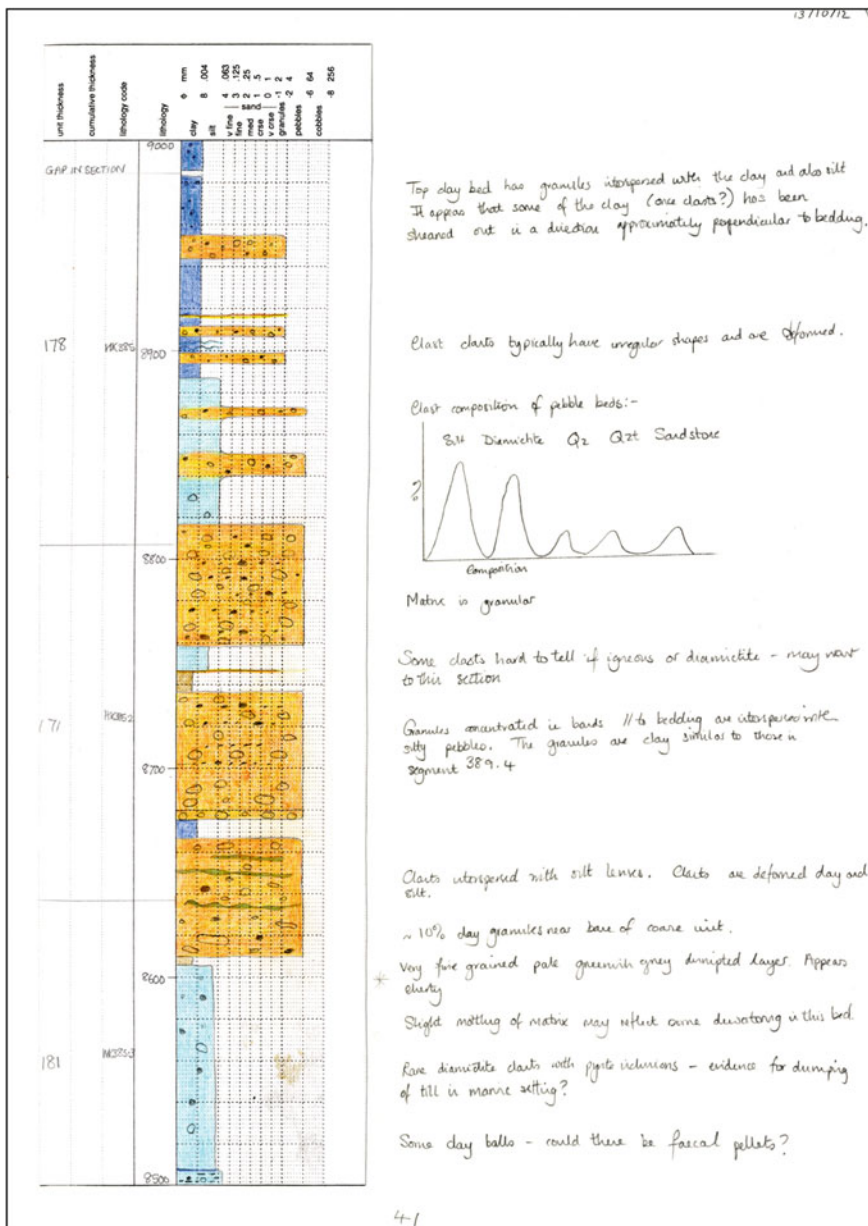 13/10/12
unit thickness
cumulative thickness
lithology code
lithology
ɸ mm
8 .004
4 .063
3 .125
2 .25
1 .5
0 1
-1 2
-2 4
-6 64
-8 256
clay
silt
sand
v fine
fine
med
crse
v crse
granules
pebbles
cobbles
9000
GAP IN SECTION
Top clay bed has granules interspersed with the clay and also silt
It appears that some of the clay (once clasts?) has been
sheared out in a direction approximately perpendicular to bedding.
178
8900
Clast clasts typically have irregular shapes and are deformed.
Clast composition of pebble beds:-
Silt Diamictite Qz Qzt Sandstone
%
Composition
8800
Matrix is granular
Some clasts hard to tell if igneous or diamictite - may
to this section
171
Granules concentrated in bands // to bedding are interspersed with
silty pebbles. The granules are clay similar to those in
segment 389.4
8700
Clasts interspersed with silt lenses. Clasts are deformed clay and
silt.
~ 10% clay granules near base of coarse unit.
8600
Very fine grained pale greenish grey disrupted layer. Appears
cherty
Slight mottling of matrix may reflect some dewatering in this bed.
181
Rare diamictite clasts with pyrite inclusions - evidence for dumping
of till in marine setting?
Some clay balls - could there be faecal pellets?
8500
41